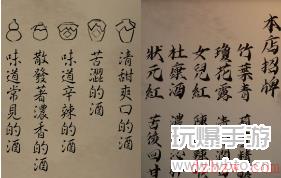 本店招牌
竹葉青
瓊花露
女兒紅
杜康酒
狀元紅 苦後回甘
清甜爽口的酒
苦澀的酒
味道辛辣的酒
散發著濃香的酒
味道常見的酒
玩爆手游